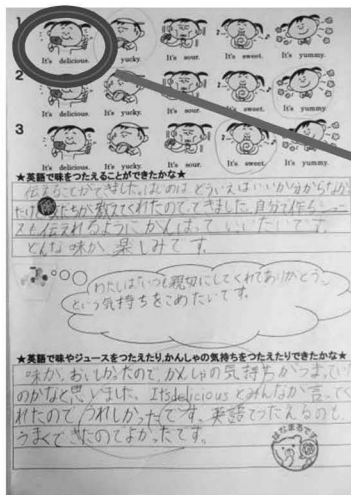 1
It's delicious. yucky. It's sour. It's sweet. It's yummy.
2
It's delicious. It's yucky. It's sour. It's sweet. It's yummy.
3
It's delicious. It's yucky. It's sour. It's sweet. It's yummy.
★英語で味をつたえることができたかな★
伝えることができました。はじめは どういえばいいか分からなか
たけ たちが教えてくれたので、できました。自分で作る
スも伝えれるようにがんばって いいたいです。
どんな味か 楽しみです。
わたしは「いつも親切にしてくれてありがとう。」
という気持ちをこめたいです。
★英語で味やジュースをつたえたり、かんしゃの気持ちをつたえたりできたかな★
味が、おいしかったので、かんしゃの気持ちがつまっていた
のかなと思いました。Itsdeliciousとみんなが言ってく
れたので うれしかったです。英語でつたえるのも、
うまくできたのでよかったです。
はなまるです